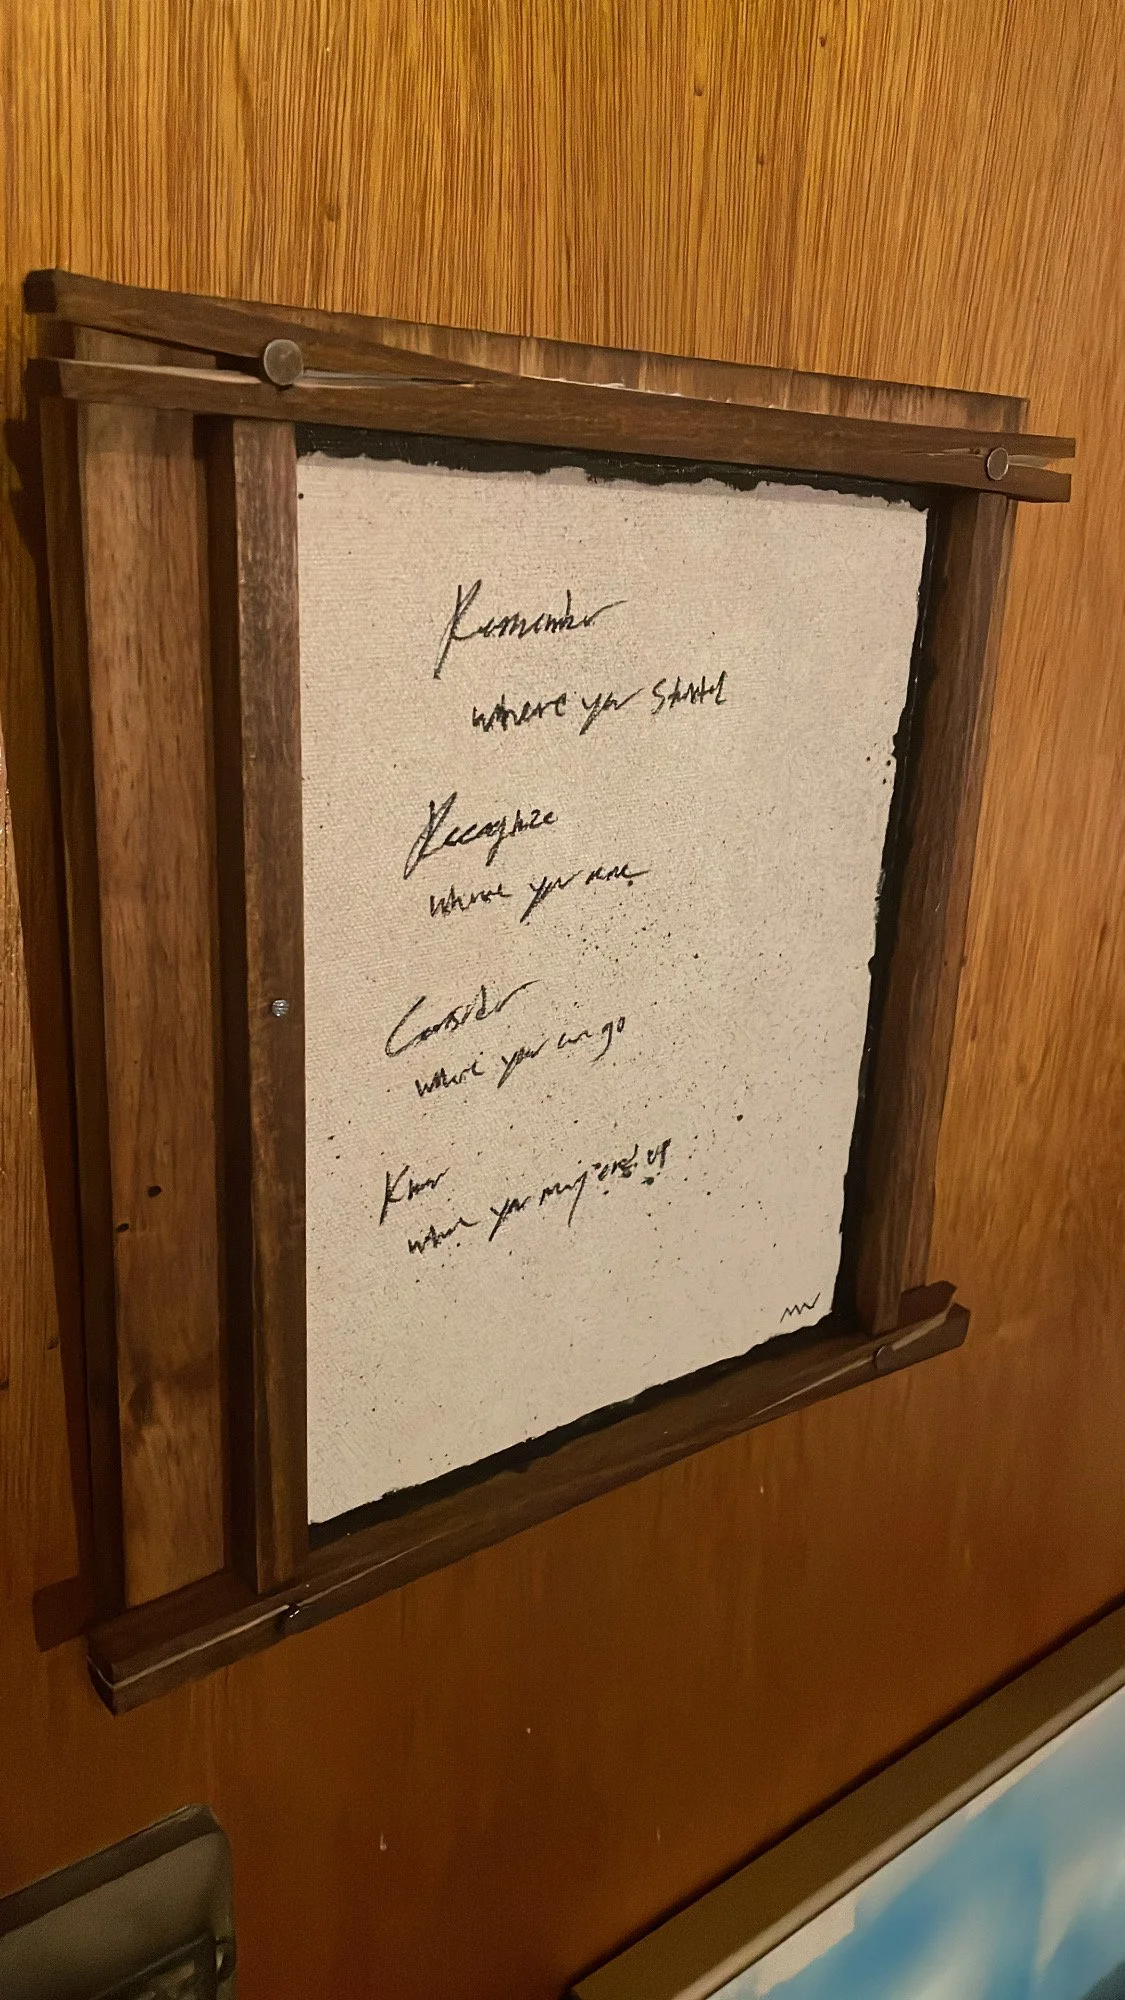 Remember
where you started
Recognize
where you are
Consider
where you can go
Know
where you may end up